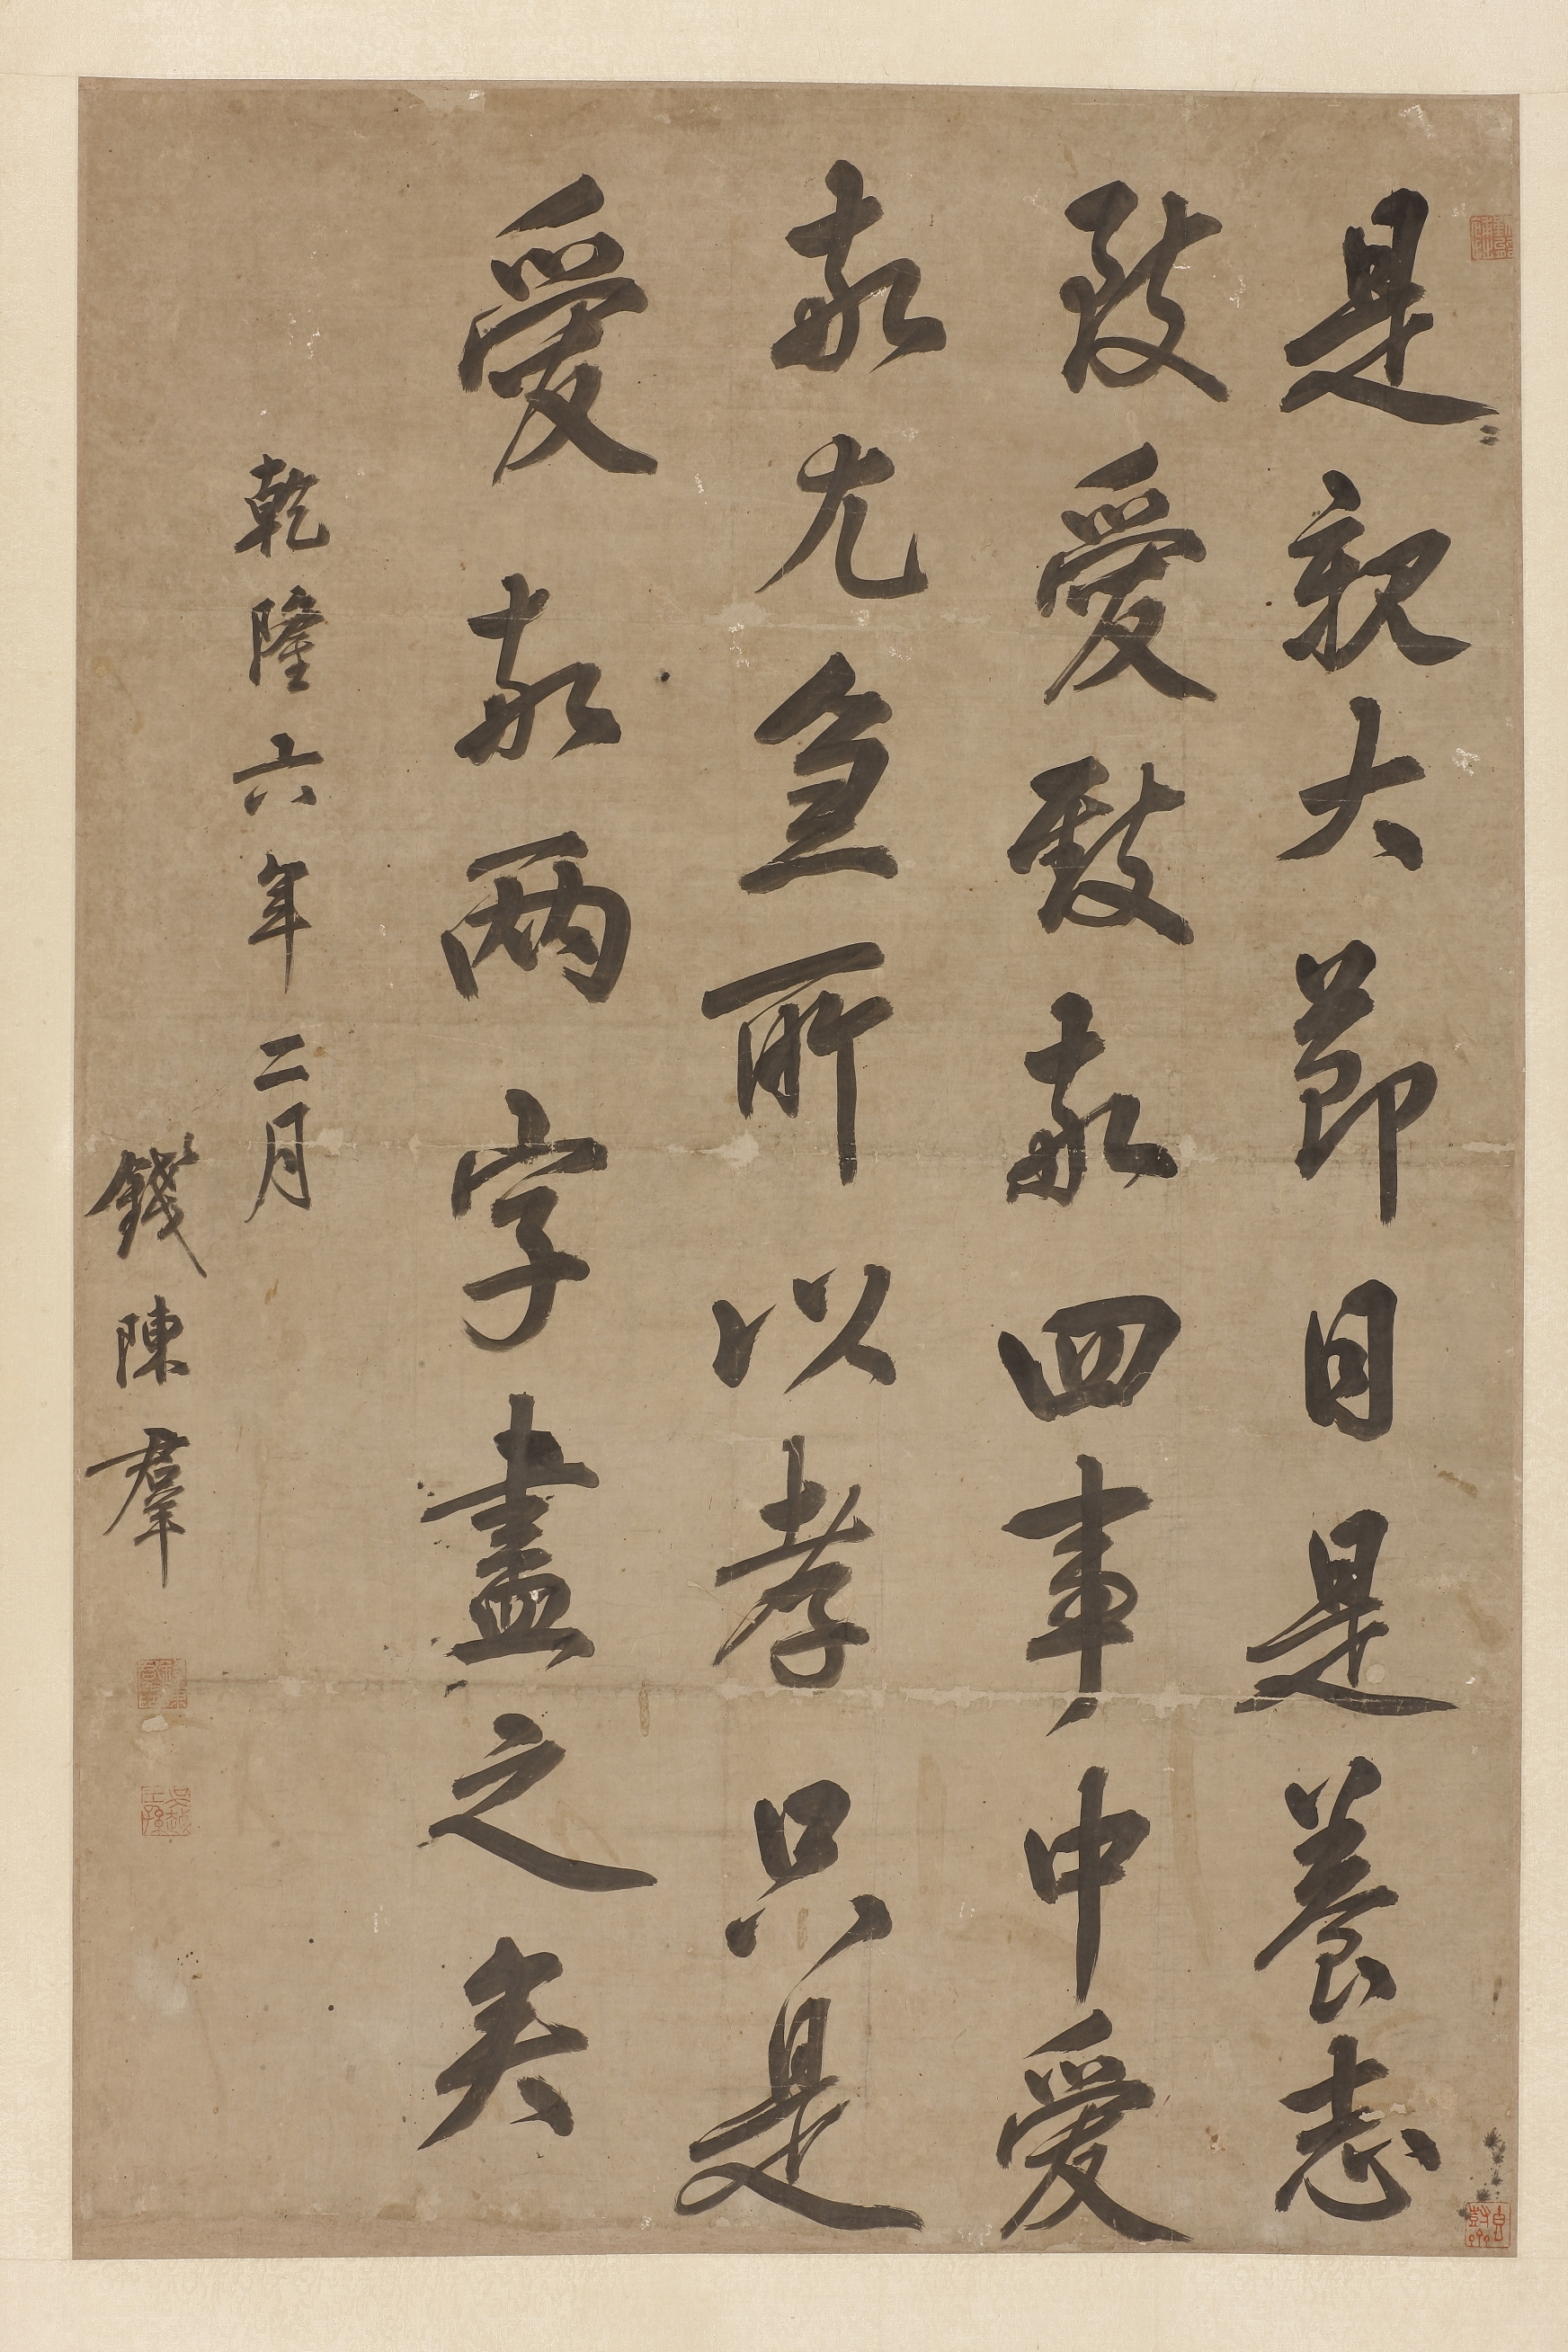 是親大節目是養志
致愛致敬四事中愛
敬尤急所以孝只是
愛敬兩字盡之矣
乾隆六年二月
錢陳羣
吳越王孫